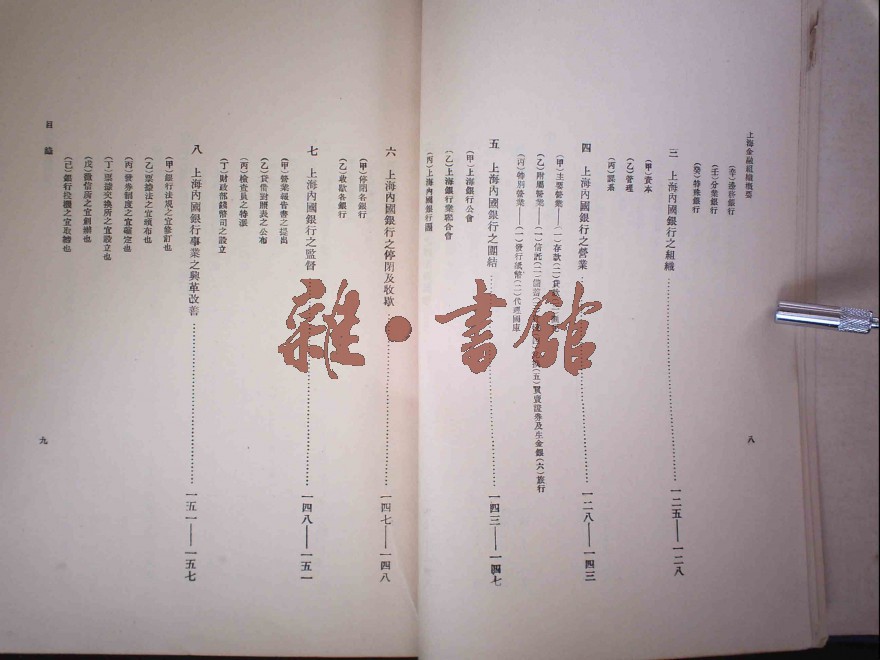 上海金融組織概要
(辛)通容銀行
(壬)分業銀行
(癸)特殊銀行
三 上海內國銀行之組織……一二五——一二八
(甲)資本
(乙)管理
(丙)課系
四 上海內國銀行之營業……一二八——一四三
(甲)主要營業——(一)存款(二)貸款
(乙)附屬營業——(一)信託(二)儲蓄(五)買賣證券及生金銀(六)旅行
(丙)特別營業——(一)發行紙幣(二)代理國庫
五 上海內國銀行之團結……一四三——一四七
(甲)上海銀行公會
(乙)上海銀行業聯合會
(丙)上海內國銀行團
八
六 上海內國銀行之停閉及收歇……一四七——一四八
(甲)停閉各銀行
(乙)收歇各銀行
七 上海內國銀行之監督……一四八——一五一
(甲)營業報告書之提出
(乙)貸借對照表之公布
(丙)檢查員之特派
(丁)財政部錢幣司之設立
八 上海內國銀行事業之興革改善……一五一——一五七
(甲)銀行法規之宜修訂也
(乙)票據法之宜頒布也
(丙)發券制度之宜確定也
(丁)票據交換所之宜設立也
(戊)徵信所之宜創辦也
(己)銀行投機之宜取締也
目 錄
九
雜·書舘